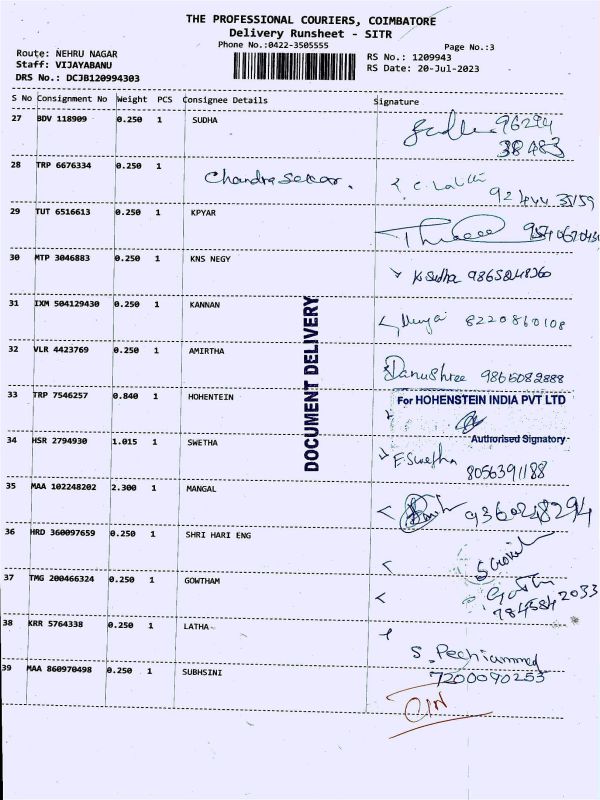 THE PROFESSIONAL COURIERS, COIMBATORE
Delivery Runsheet - SITR
Phone No.:0422-3505555
Page No.:3
Route: NEHRU NAGAR
Staff: VIJAYABANU
DRS No.: DCJB120994303
RS No.: 1209943
RS Date: 20-Jul-2023
S No Consignment No Weight PCS Consignee Details Signature
27 BDV 118909 0.250 1 SUDHA
96294
38483
28 TRP 6676334 0.250 1 Chandrasekar.
29 TUT 6516613 0.250 1 KPYAR
30 MTP 3046883 0.250 1 KNS NEGY
K. Sudha
31 IXM 504129430 0.250 1 KANNAN
8220860108
32 VLR 4423769 0.250 1 AMIRTHA
Danushree 9866082888
DOCUMENT DELIVERY
33 TRP 7546257 0.840 1 HOHENTEIN
For HOHENSTEIN INDIA PVT LTD
Authorised Signatory
34 HSR 2794930 1.015 1 SWETHA
E. Swetha 8056391188
35 MAA 102248202 2.300 1 MANGAL
9360248294
36 HRD 360097659 0.250 1 SHRI HARI ENG
37 TMG 200466324 0.250 1 GOWTHAM
38 KRR 5764338 0.250 1 LATHA
S. Pechiammal
7200090253
39 MAA 860970498 0.250 1 SUBHSINI